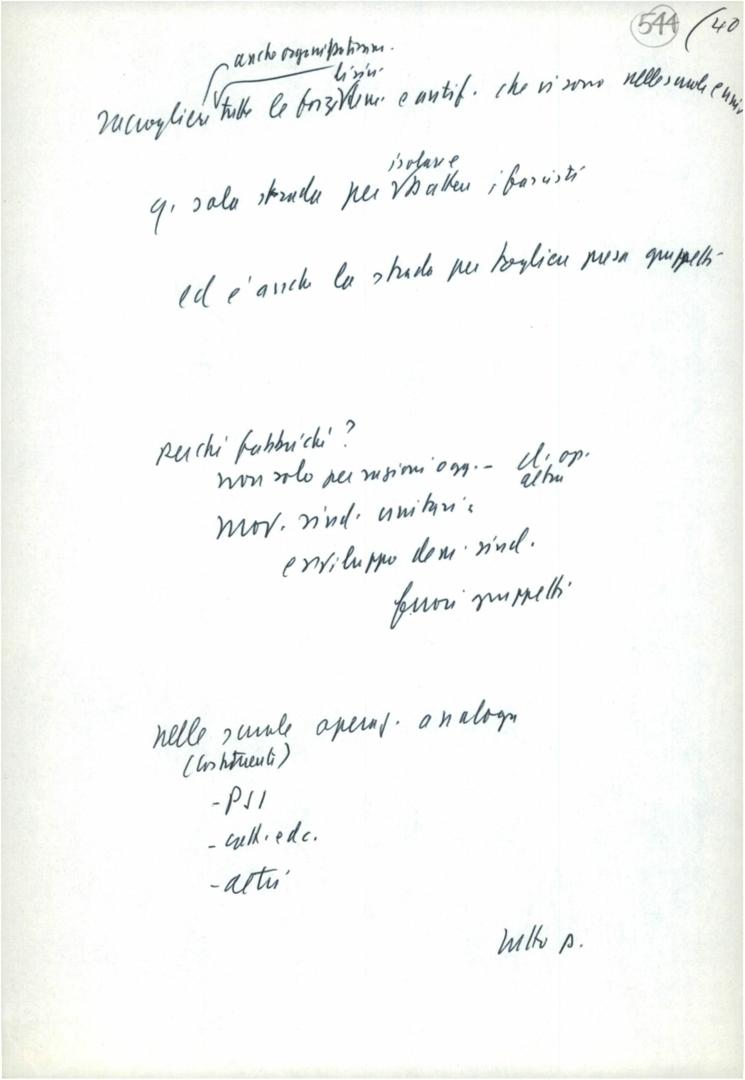 544 (40
anche organizzativam.
di sin.
raccogliere tutte le forze dem. e antif. che vi sono nelle scuole e univ
isolare
q. sola strada per battere i fascisti
ed è anche la strada per togliere presa gruppetti
perché fabbriche?
non solo per ragioni ogg. - cl. op.
altri
mov. sind. unitario
e sviluppo dem. sind.
fuori gruppetti
nelle scuole operaz. analoga
(costituenti)
- PSI
- catt. e d.c.
- altri
p.